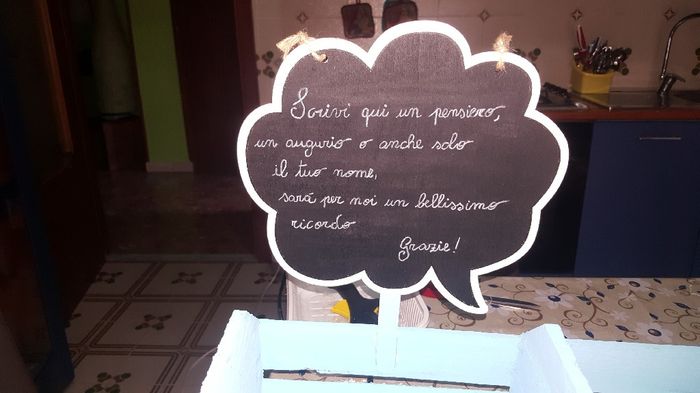 Scrivi qui un pensiero,
un augurio o anche solo
il tuo nome,
sarà per noi un bellissimo
ricordo
Grazie!